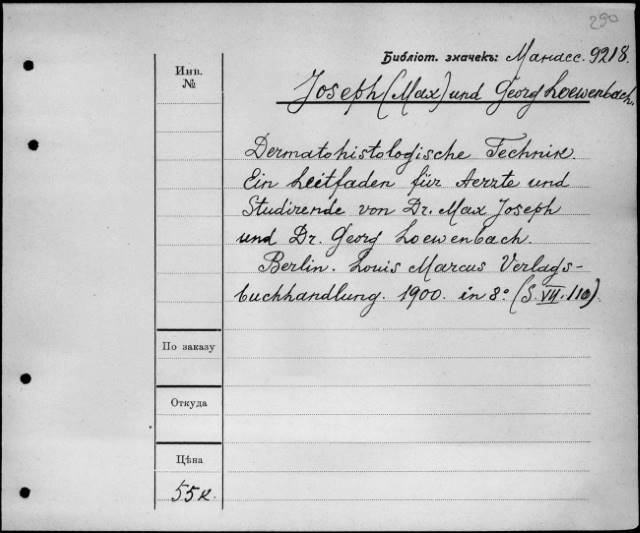 290
Библіот. значекъ: Манасс. 9218.
Инв.
№
Joseph (Max) und Georg Loewenbach.
Dermatohistologische Technik.
Ein Leitfaden für Aerzte und
Studirende von Dr. Max Joseph
und Dr. Georg Loewenbach.
Berlin. Louis Marcus Verlags-
buchhandlung. 1900. in 8° (S. VII. 110).
По заказу
Откуда
Цѣна
55 к.